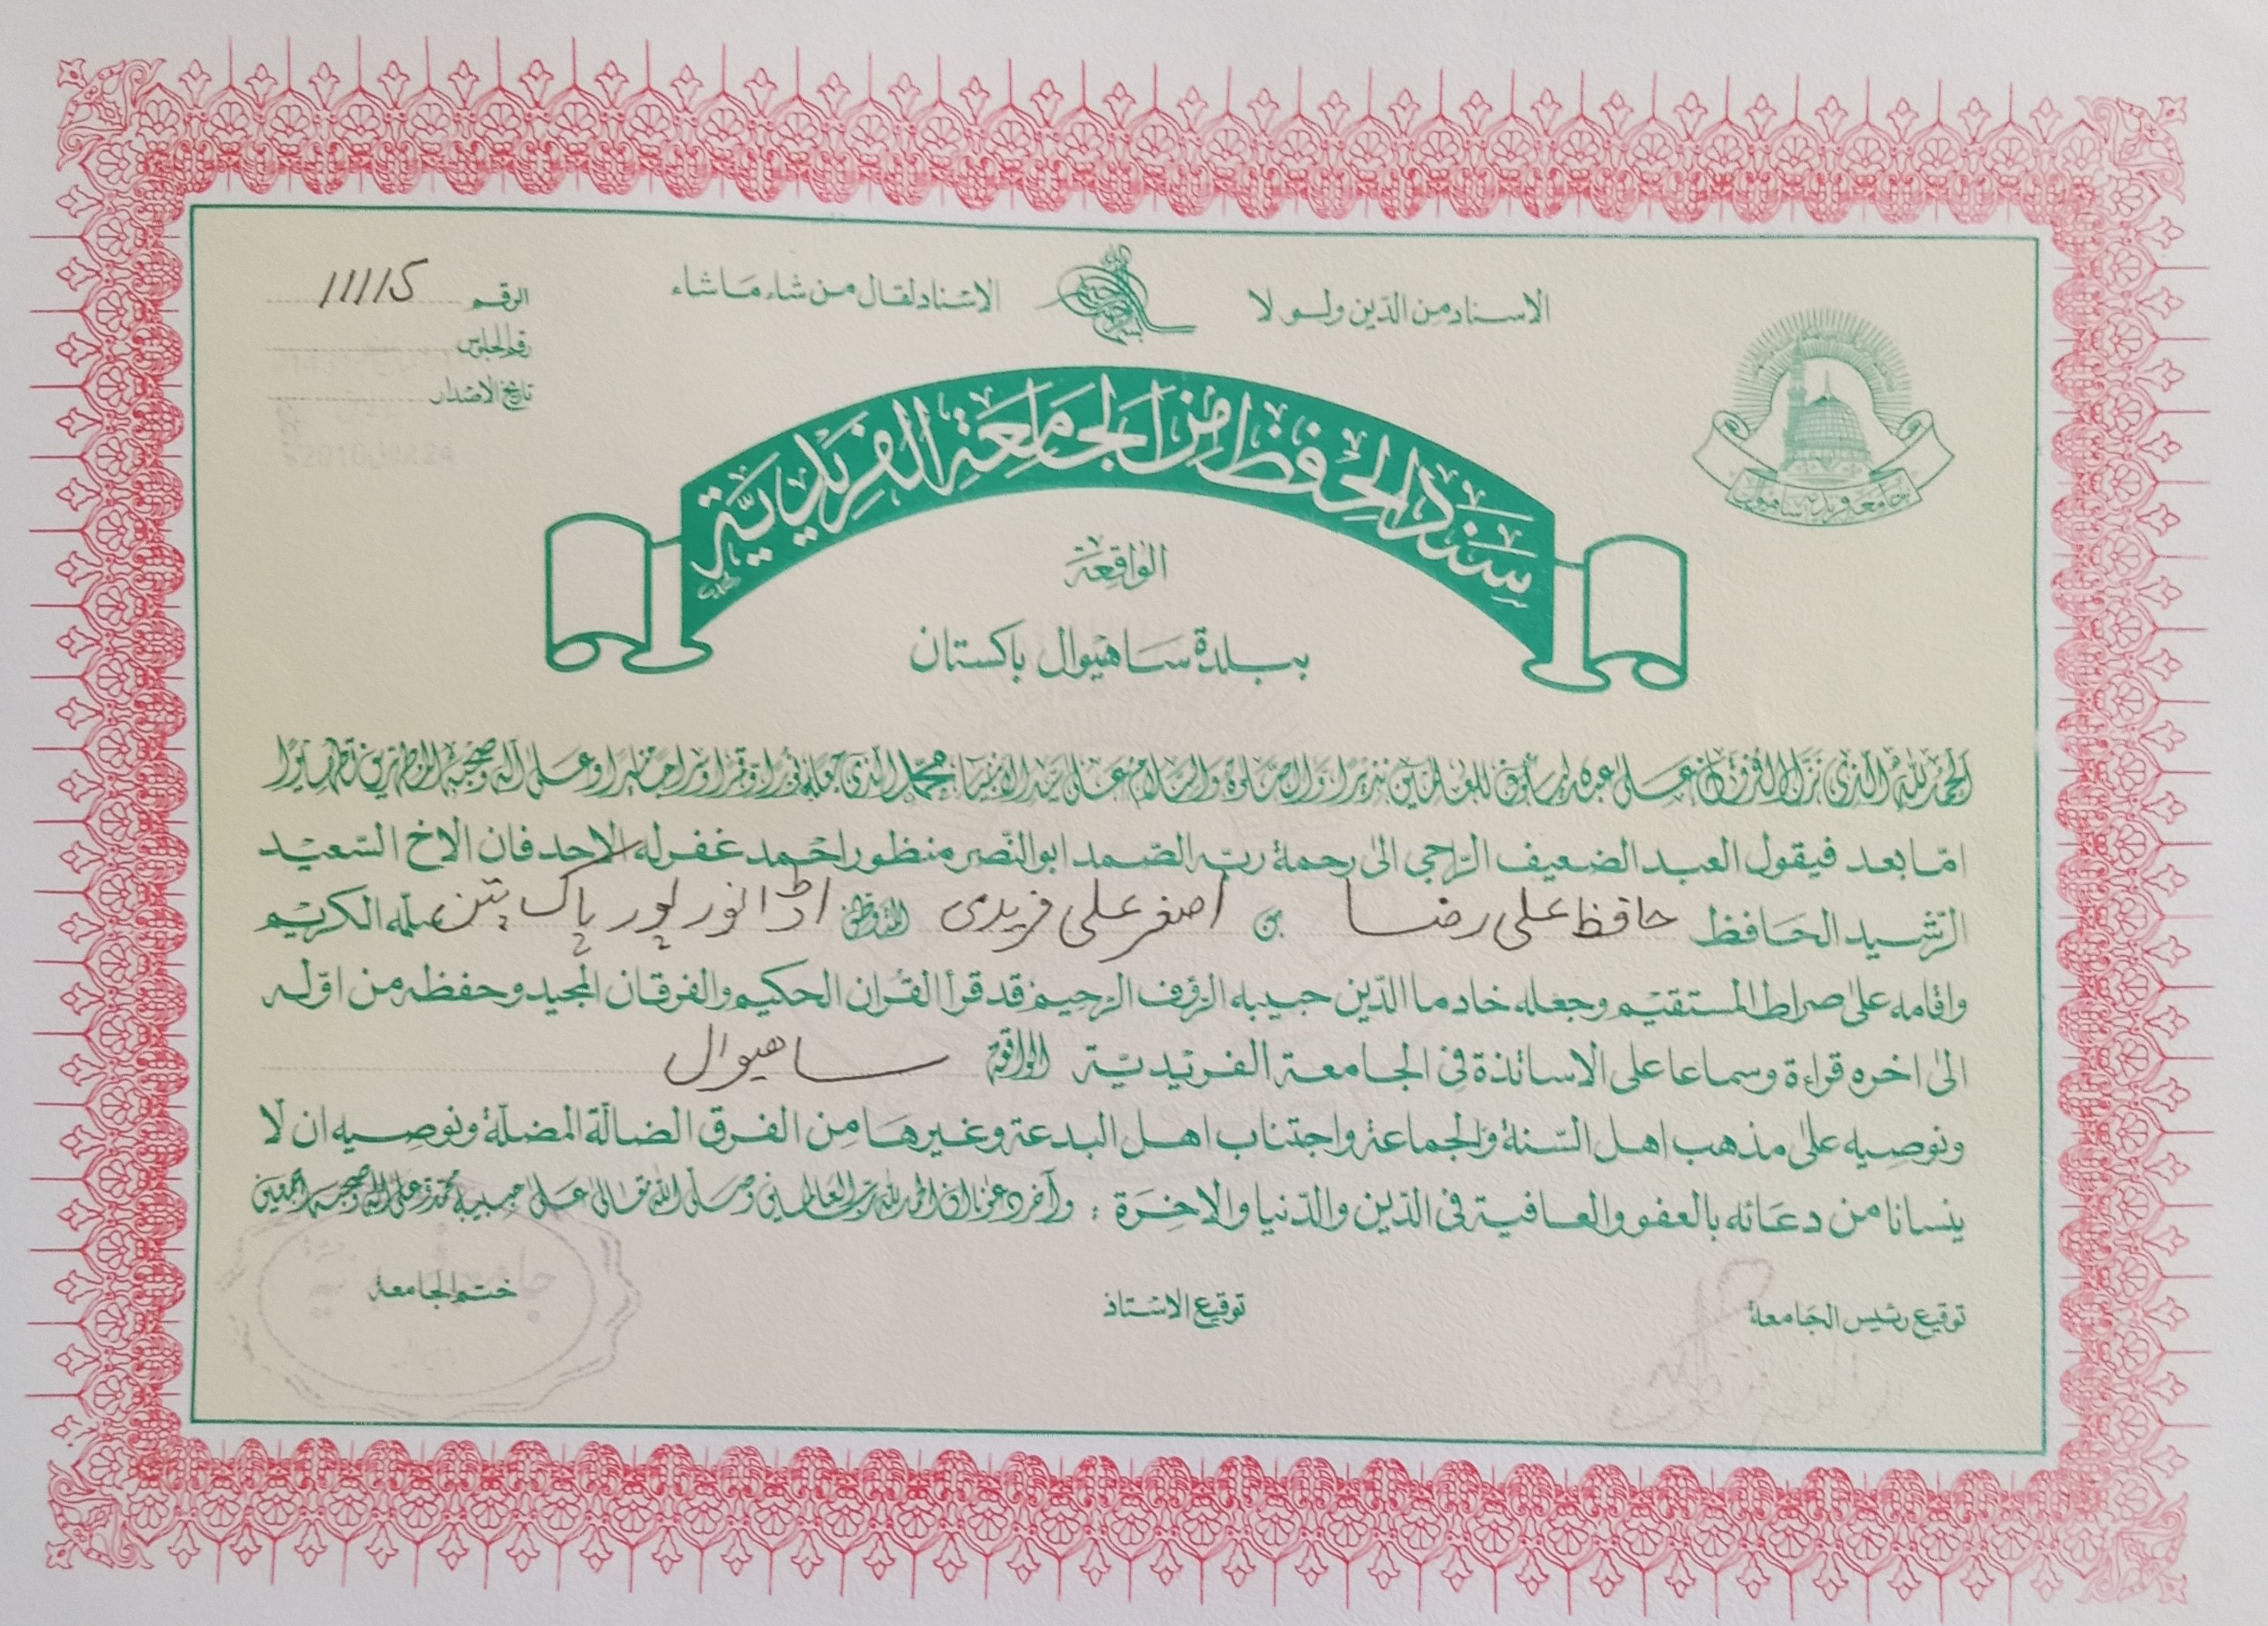 الاسناد من الدّين ولو لا الاسناد لقال من شاء ما شاء
الرقم 11115
رقم الجلوس
تاريخ الاصدار
24 2010
جامعہ فریدیہ ساہیوال
سند الحفظ من الجامعة الفريدية
الواقعة
ببلدة ساهيوال باكستان
الحمد لله الذى نزل الفرقان على عبده ليكون للعلمين نذيرا والصلوة والسلام على سيد الانبياء محمد الذى جعله نورا وقمرا وعلى اله وصحبه المطهرين تطهيرا
امّا بعد فيقول العبد الضعيف الراجى الىٰ رحمة ربّه الصّمد ابو النّصر منظور احمد غفرله الاحد فان الاخ السّعيد
الرّشيد الحافظ حافظ علی رضا بن اصغر علی فریدی المتوطن اڈا نور پور پاک پتن سلّمه الكريم
واقامه علىٰ صراط المستقيم وجعله خادما الدّين حبيبه الرّؤف الرّحيم قد قرأ القراٰن الحكيم والفرقان المجيد وحفظه من اوّله
الىٰ اخره قراءة وسماعا على الاساتذة فى الجامعة الفريديّة الواقعة ساھیوال
ونوصيه علىٰ مذهب اهل السّنة والجماعة واجتناب اهل البدعة وغيرها من الفرق الضالّة المضلّة ونوصيه ان لا
ينسانا من دعائه بالعفو والعافية فى الدّين والدّنيا والاٰخرة ؛ وآخر دعونا ان الحمد لله رب العالمين وصلى الله تعالى على حبيبه محمد وعلى اله وصحبه اجمعين
توقيع رئيس الجامعة
توقيع الاستاذ
ختم الجامعة